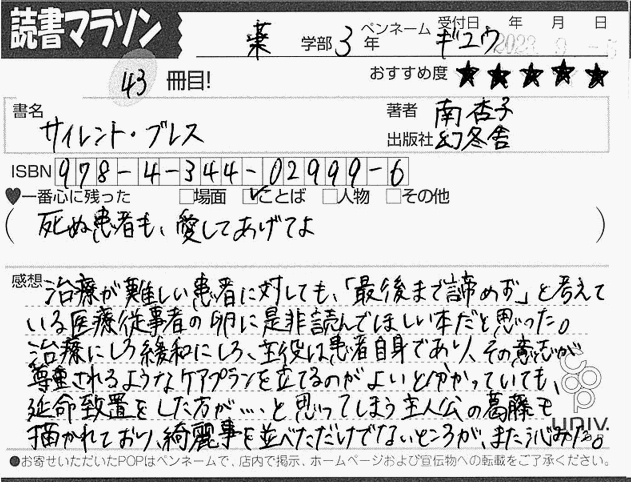 読書マラソン
薬 学部 3 年 ペンネーム ギユウ 受付日 年 月 日
43 冊目! おすすめ度 ★★★★★
書名 サイレント・ブレス
著者 南杏子
出版社 幻冬舎
ISBN 978-4-344-02999-6
♥一番心に残った □場面 ☑ことば □人物 □その他
(死ぬ患者も、愛してあげてよ)
感想 治療が難しい患者に対しても、「最後まで諦めず」と考えて
いる医療従事者の卵に是非読んでほしい本だと思った。
治療にしろ緩和にしろ、主役は患者自身であり、その意志が
尊重されるようなケアプランを立てるのがよいと分かっていても、
延命処置をした方が…、と思ってしまう主人公の葛藤も
描かれており、綺麗事を並べただけでないところが、また沁みた。
coop
UNIV.
●お寄せいただいたPOPはペンネームで、店内で掲示、ホームページおよび宣伝物への転載をご了承ください。